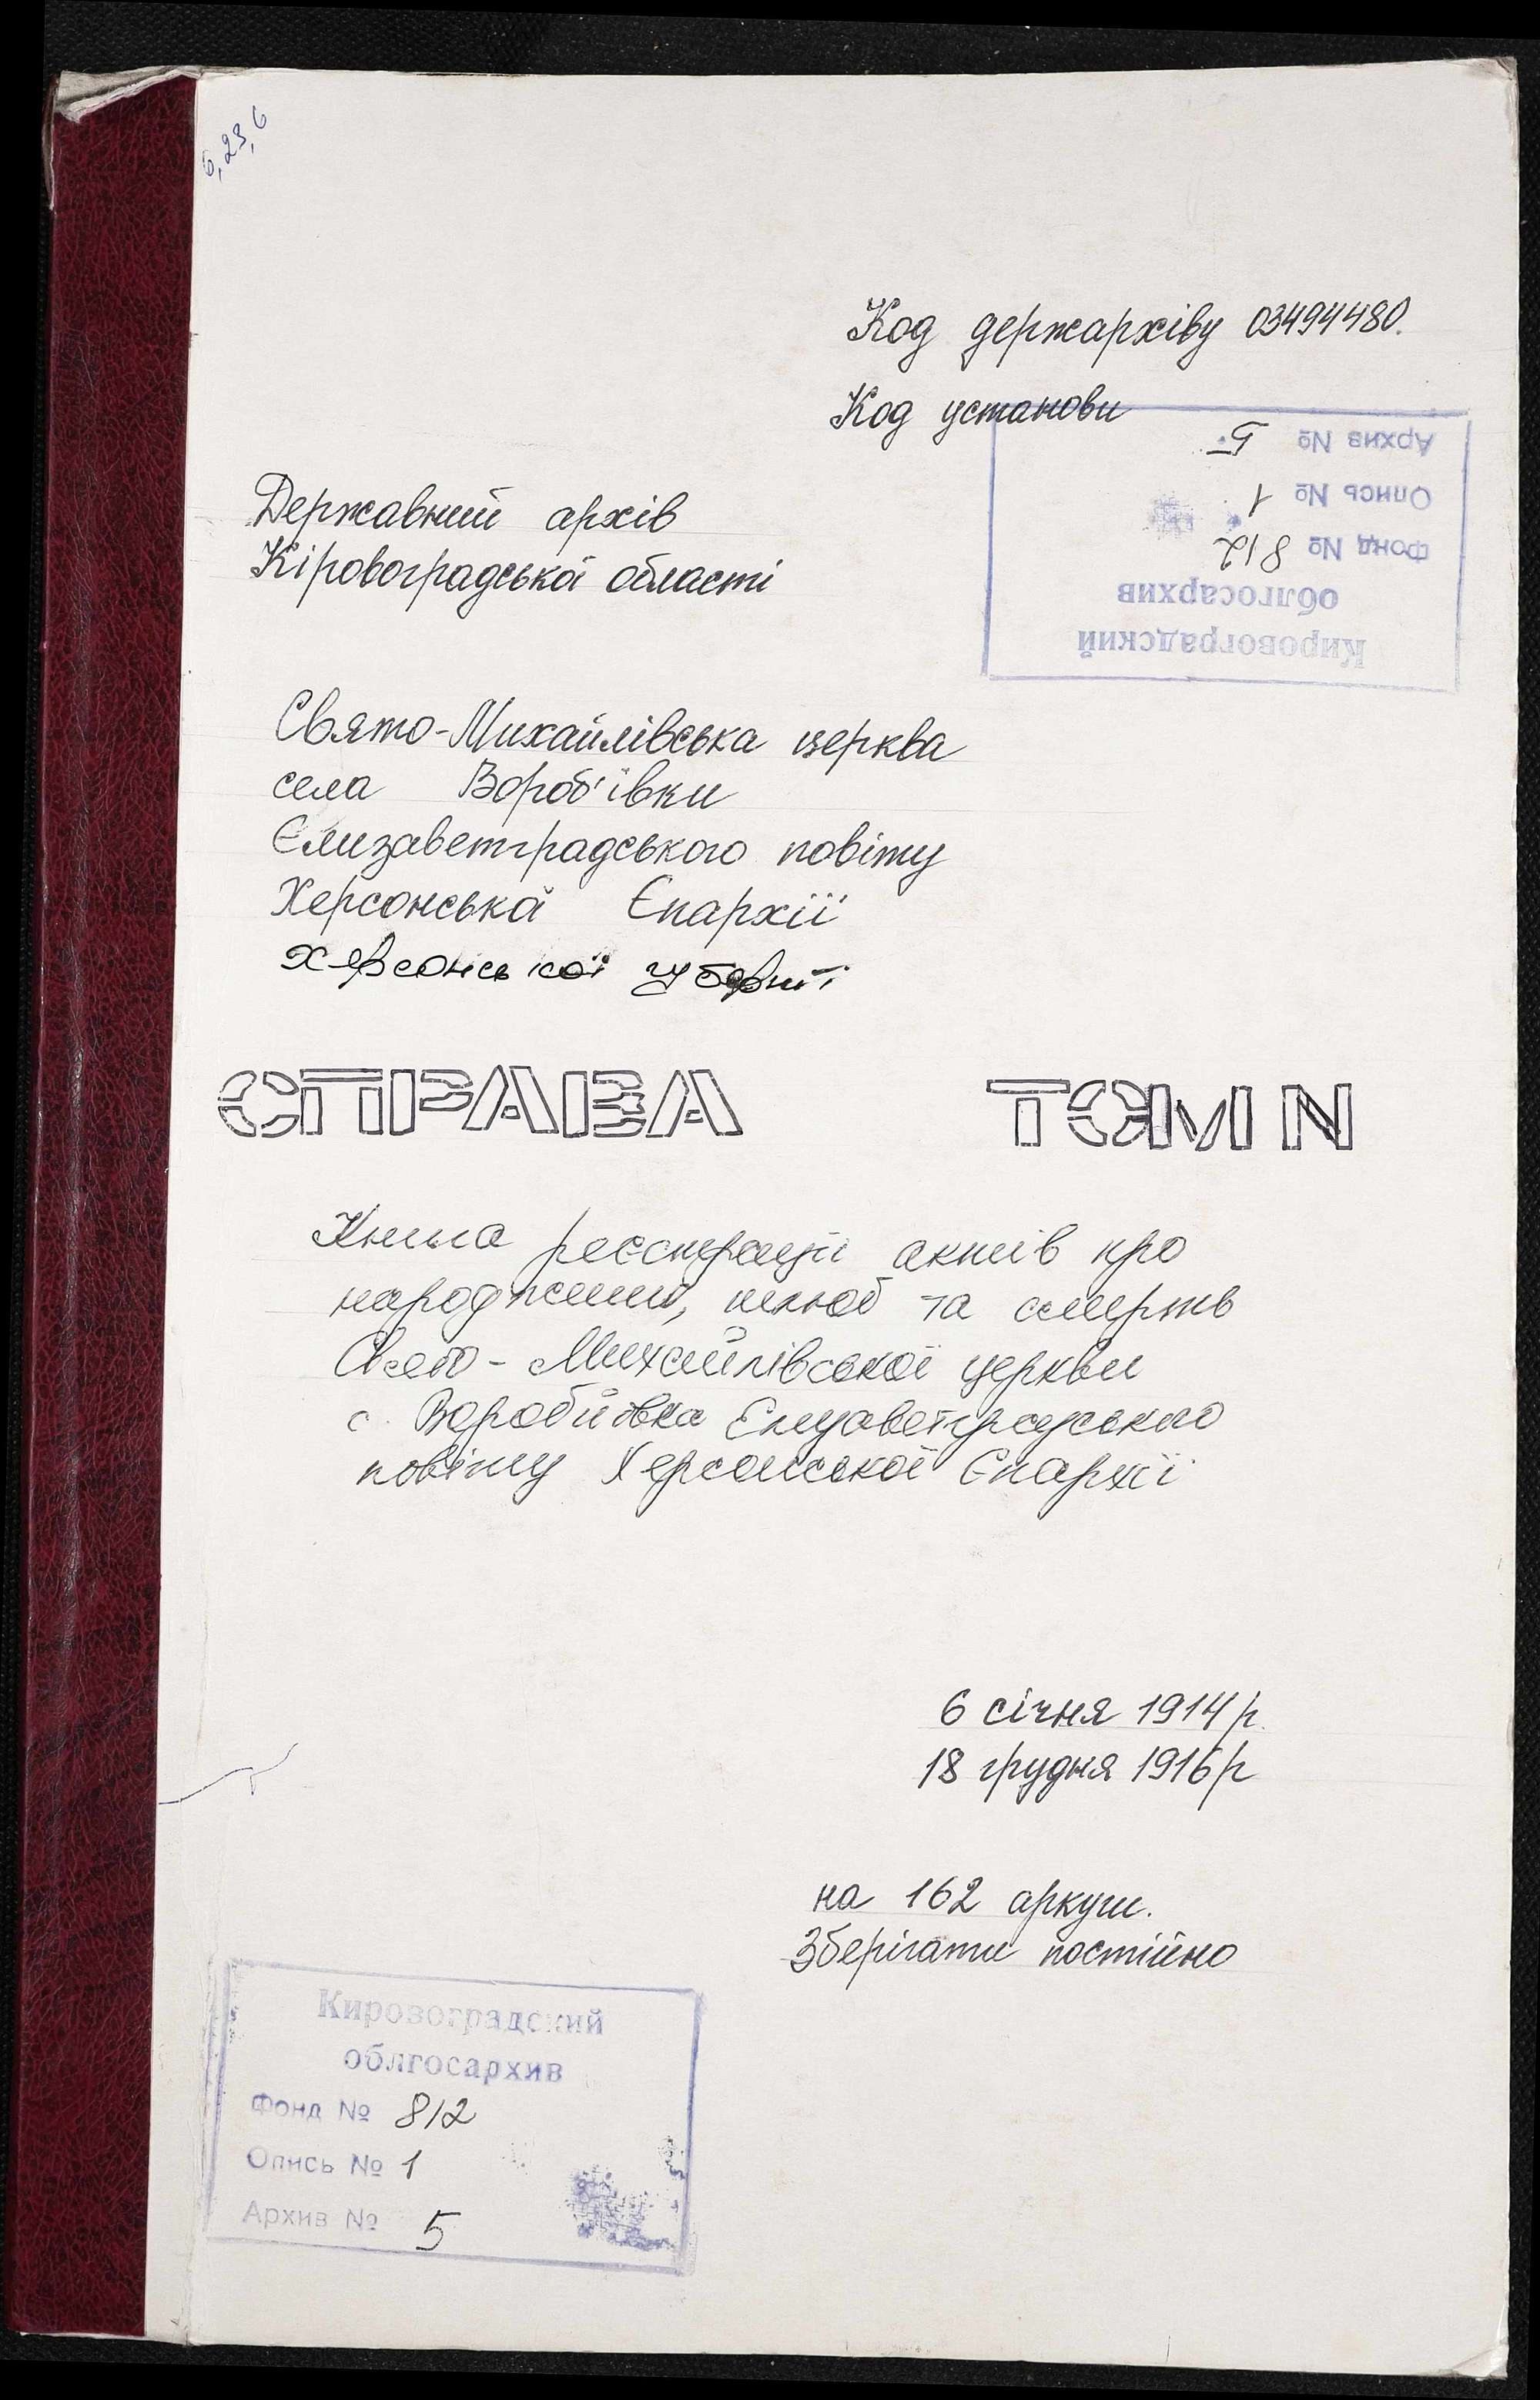 6,23,6
Код держархіву 03494480.
Код установи
Архив № 5
Опись № 1
Фонд № 812
облгосархив
Кировоградский
Державний архів
Кіровоградської області
Свято-Михайлівська церква
села Вороб'ївки
Єлизаветградського повіту
Херсонської Єпархії
Херсонської губернії
СПРАВА ТОМ N
Книга реєстрації актів про
народження, шлюб та смерть
Свято-Михайлівської церкви
с. Воробйовка Єлизаветградського
повіту Херсонської Єпархії
6 січня 1914 р.
18 грудня 1916 р
на 162 аркуш.
Зберігати постійно
Кировоградский
облгосархив
Фонд № 812
Опись № 1
Архив № 5